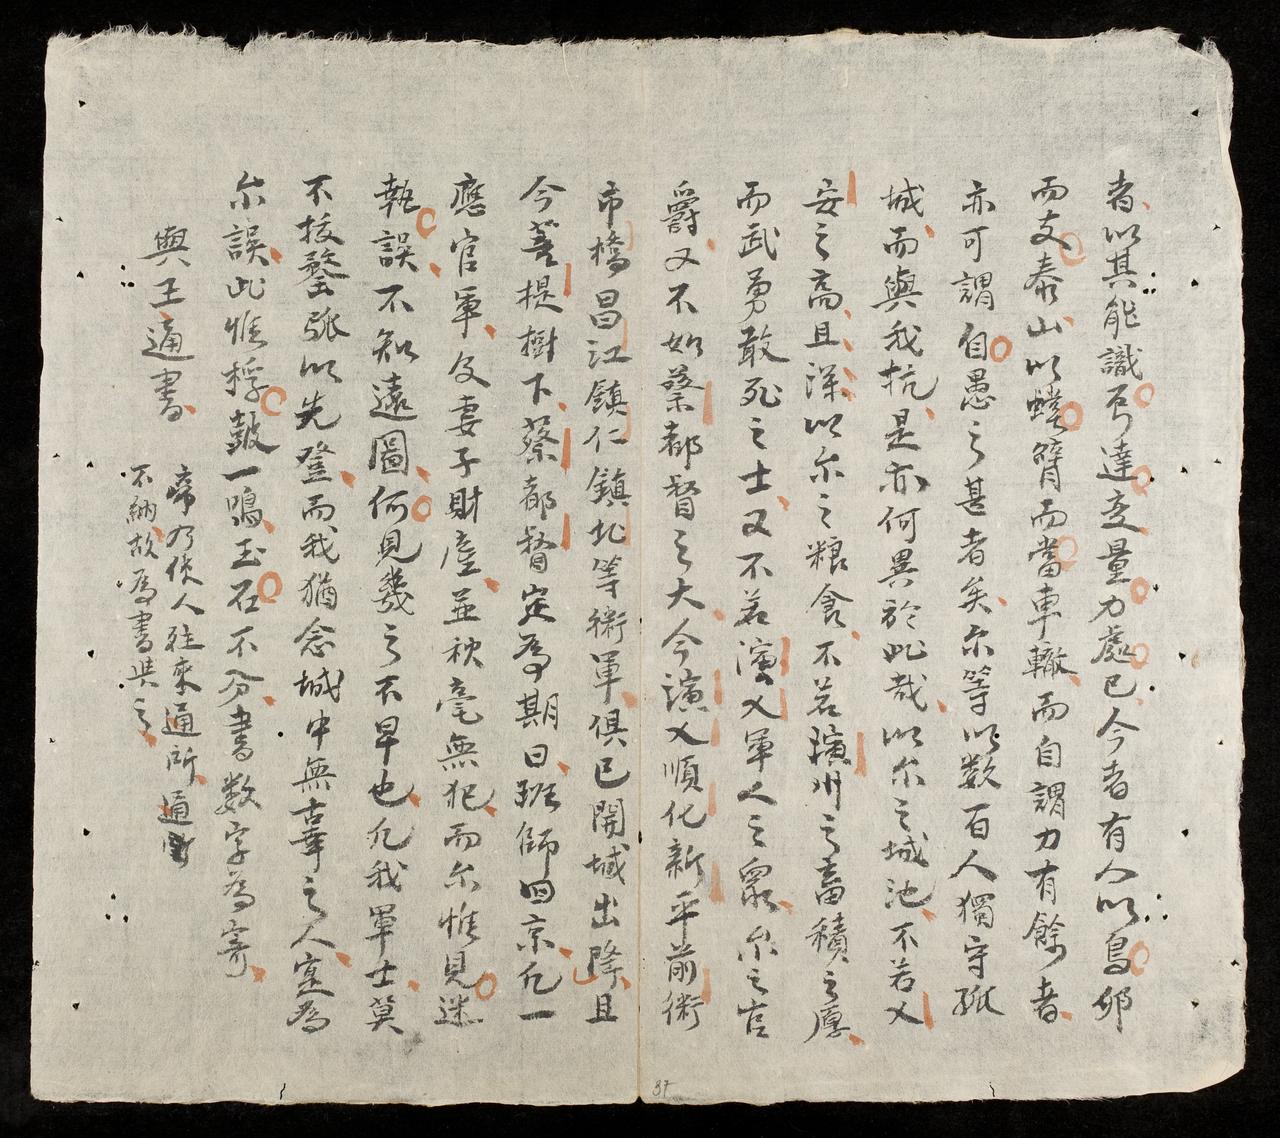 者以其能識時達变量力處己今者有人以鳥卵
而支泰山以螳臂而當車轍而自謂力有餘者
亦可謂自愚之甚者矣尔等以数百人獨守孤
城而與我抗是亦何異於此哉以尔之城池不若乂
安之高且深以尔之粮食不若演州之畜積之廪
而武勇敢死之士又不若演乂軍人之衆尔之官
爵又不如蔡都督之大今演乂順化新平前衛
市橋昌江鎮仁鎮北等衛軍俱已開城出降且
今菩提樹下蔡都督定為期日班師回京凡一
應官軍及妻子財產並秋毫無犯而尔惟見迷
執誤不知遠圖何見幾之不早也凡我軍士莫
不援鍪弧以先登而我猶念城中無辜之人寔為
尔誤此惟桴皷一鳴玉石不分書数字為寄
與王通書
帝乃使人往來通所通
不納故為書與之
37